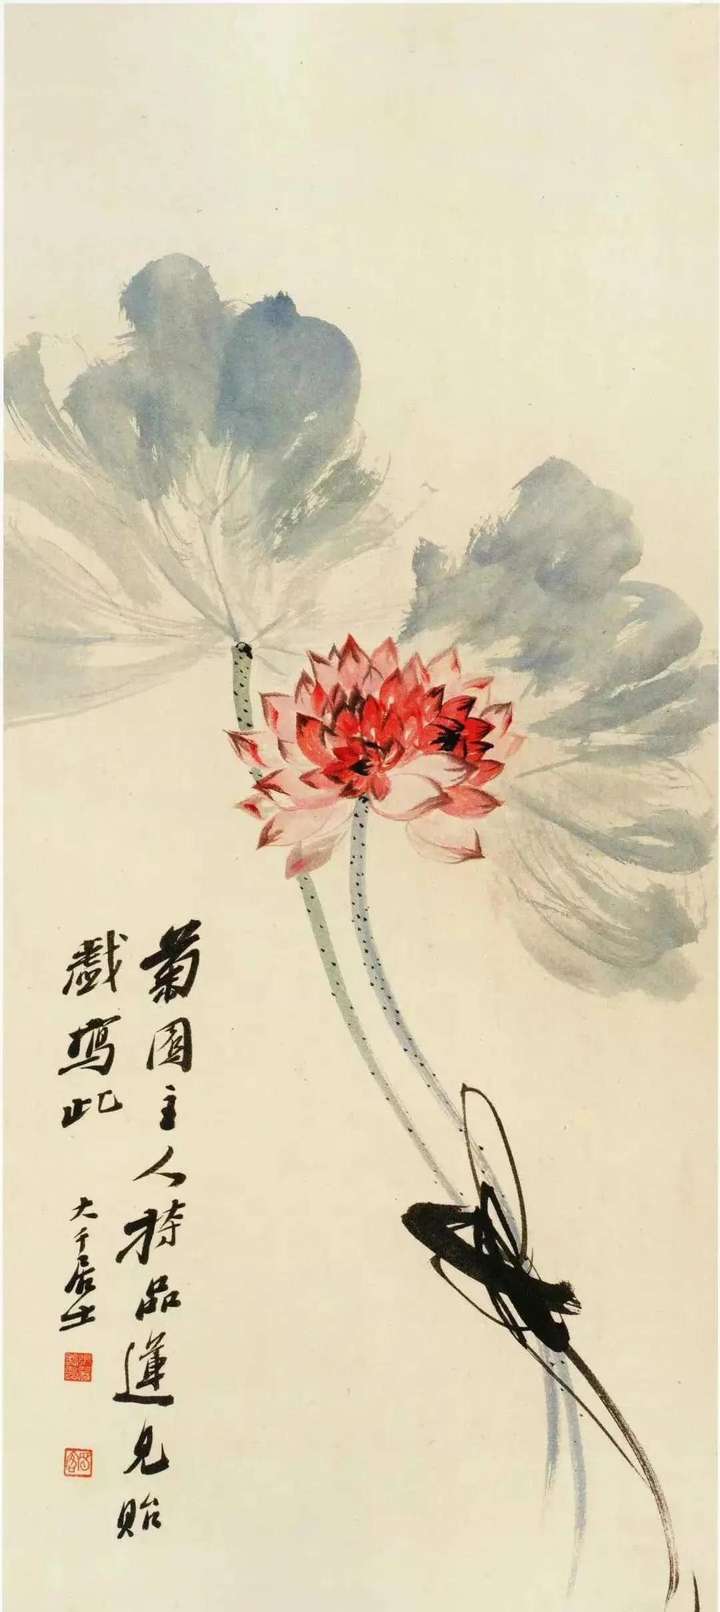 菊園主人持品蓮見貽
戲寫此
大千居士